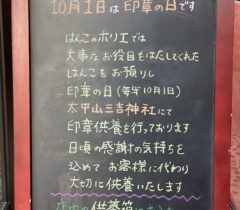 10月1日は印章の日です
はんこのホリエでは
大事なお役目をはたしてくれた
はんこをお預りし
印章の日（毎年10月1日）
太甲山三吉神社にて
印章供養を行っております
日頃の感謝の気持ちを
込めてお客様に代わり
大切に供養いたします
店内の供養箱に